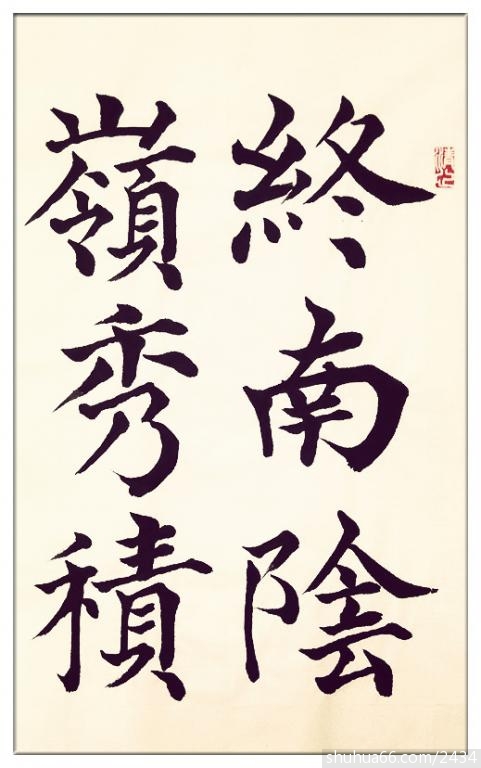 終南陰
嶺秀積
shuhua66.com/2434